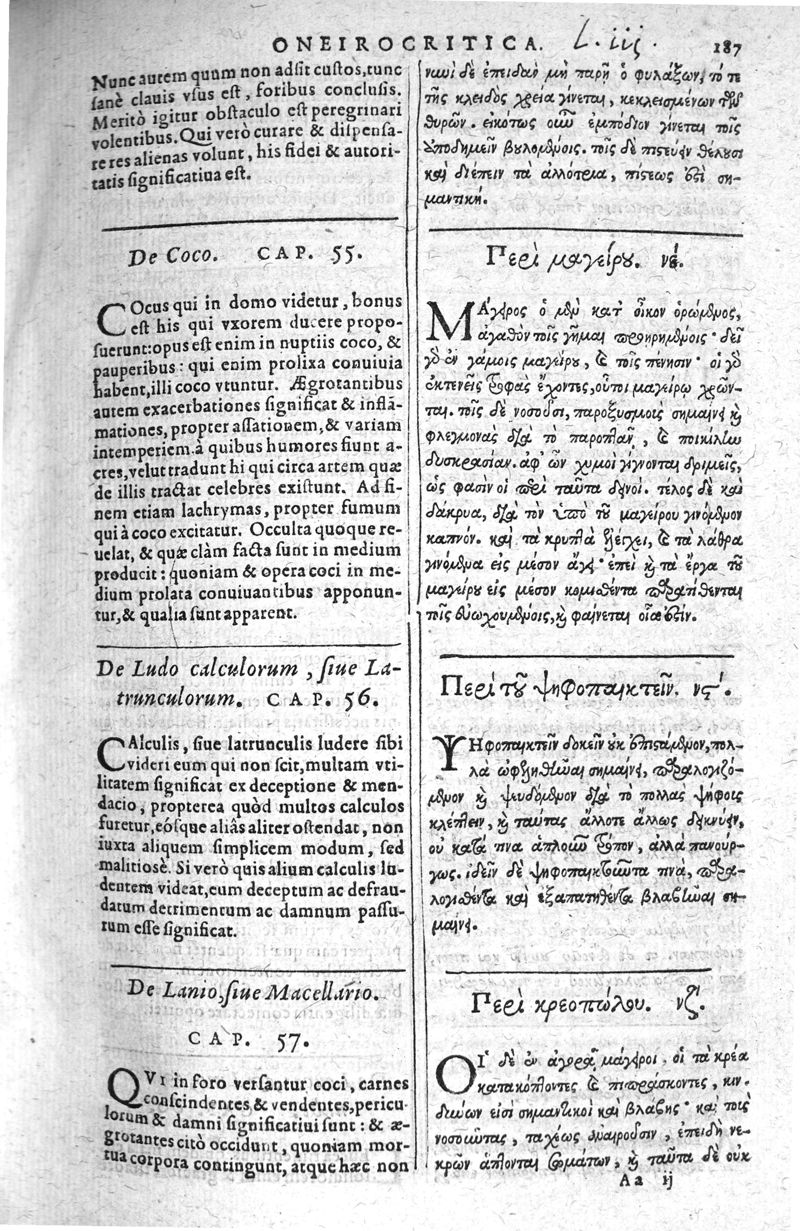 ONEIROCRITICA. L. iij. 187
Nunc autem quum non adsit custos, tunc
sanè clauis vsus est, foribus conclusis.
Meritò igitur obstaculo est peregrinari
volentibus. Qui verò curare & dispensa-
re res alienas volunt, his fidei & autori-
tatis significatiua est.
De Coco. CAP. 55.
COcus qui in domo videtur, bonus
est his qui vxorem ducere propo-
suerunt: opus est enim in nuptiis coco, &
pauperibus: qui enim prolixa conuiuia
habent, illi coco vtuntur. Ægrotantibus
autem exacerbationes significat & inflā-
mationes, propter assationem, & variam
intemperiem. à quibus humores fiunt a-
cres, velut tradunt hi qui circa artem quæ
de illis tractat celebres existunt. Ad fi-
nem etiam lachrymas, propter fumum
qui à coco excitatur. Occulta quoque re-
uelat, & quæ clàm facta sunt in medium
producit: quoniam & opera coci in me-
dium prolata conuiuantibus apponun-
tur, & qualia sunt apparent.
De Ludo calculorum, siue La-
trunculorum. CAP. 56.
CAlculis, siue latrunculis ludere sibi
videri eum qui non scit, multam vti-
litatem significat ex deceptione & men-
dacio, propterea quòd multos calculos
furetur, eósque aliâs aliter ostendat, non
iuxta aliquem simplicem modum, sed
malitiosè. Si verò quis alium calculis lu-
dentem videat, eum deceptum ac defrau-
datum detrimentum ac damnum passu-
rum esse significat.
De Lanio, siue Macellario.
CAP. 57.
QVI in foro versantur coci, carnes
conscindentes & vendentes, pericu-
lorum & damni significatiui sunt: & æ-
grotantes citò occidunt, quoniam mor-
tua corpora contingunt, atque hæc non
νωυὶ δὲ ἐπειδὰν μὴ παρῇ ὁ φυλάξων, τό τε
τῆς κλειδὸς χρεία γίνεται, κεκλεισμένων τῶν
θυρῶν. εἰκότως οὖν ἐμπόδιον γίνεται τοῖς
ἀποδημεῖν βουλομένοις. τοῖς δὲ πιστεύειν θέλουσι
καὶ διέπειν τὰ ἀλλότρια, πίστεως ἐστὶ ση-
μαντική.
Περὶ μαγείρου. νέ.
ΜΑγειρος ὁ μὲν κατ' οἶκον ὁρώμενος,
ἀγαθὸν τοῖς γῆμαι προῃρημένοις· δεῖ
γὸ ἐν γάμοις μαγείρου, καὶ τοῖς πένησιν· οἱ γὸ
ἐκτενεῖς τροφὰς ἔχοντες, οὗτοι μαγείρῳ χρῶν-
ται. τοῖς δὲ νοσοῦσι, παροξυσμοὺς σημαίνει καὶ
φλεγμονὰς διὰ τὸ παροπλᾶν, καὶ ποικίλην
δυσκρασίαν. ἀφ' ὧν χυμοὶ γίγνονται δριμεῖς,
ὥς φασιν οἱ περὶ ταῦτα δεινοί. τέλος δὲ καὶ
δάκρυα, διὰ τὸν ὑπὸ τοῦ μαγείρου γινόμενον
καπνόν. καὶ τὰ κρυπτὰ ἐξελέγχει, καὶ τὰ λάθρα
γινόμενα εἰς μέσον ἄγει· ἐπεὶ καὶ τὰ ἔργα τοῦ
μαγείρου εἰς μέσον κομισθέντα παρατίθενται
τοῖς εὐωχουμένοις, καὶ φαίνεται οἷα ἐστίν.
Περὶ τοῦ ψηφοπαικτεῖν. νϛʹ.
ΨΗφοπαικτεῖν δοκεῖν οὐκ ἐπιστάμενον, πολ-
λὰ ὠφεληθῆναι σημαίνει, παραλογιζό-
μενον καὶ ψευδόμενον διὰ τὸ πολλὰς ψήφους
κλέπτειν, καὶ ταύτας ἄλλοτε ἄλλως δεικνύειν,
οὐ κατά τινα ἁπλοῦν τρόπον, ἀλλὰ πανούρ-
γως. ἰδεῖν δὲ ψηφοπαικτοῦντα τινὰ, παρα-
λογισθέντα καὶ ἐξαπατηθέντα βλαβῆναι ση-
μαίνει.
Περὶ κρεοπώλου. νζ.
ΟΙ δὲ ἐν ἀγορᾷ μάγειροι, οἱ τὰ κρέα
κατακόπτοντες καὶ πιπράσκοντες, κιν-
δύνων εἰσὶ σημαντικοὶ καὶ βλάβης· καὶ τοὺς
νοσοῦντας, ταχέως ἀναιροῦσιν, ἐπειδὴ νε-
κρῶν ἅπτονται σωμάτων, καὶ ταῦτα δὲ οὐκ
Aa ij